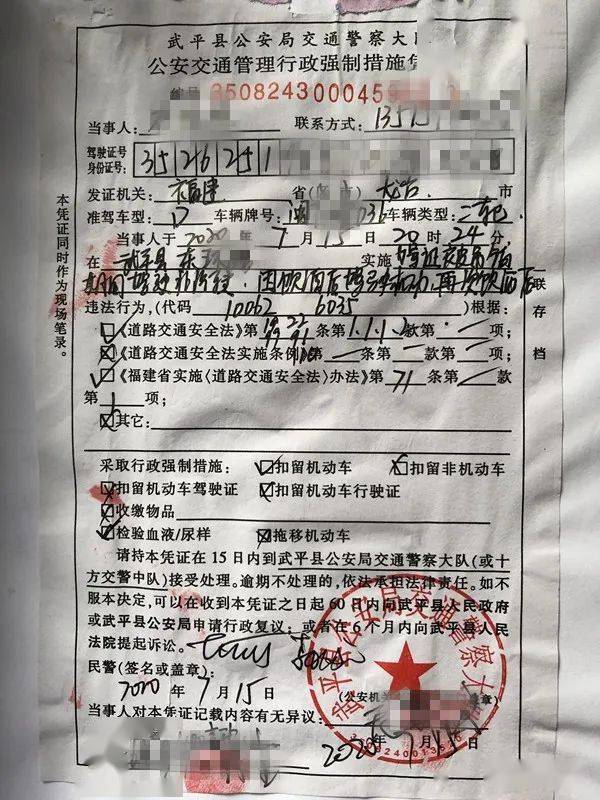 武平县公安局交通警察大队
公安交通管理行政强制措施凭
编号 3508243000045
当事人: 联系方式: 13575
驾驶证号 身份证号: 3526251
发证机关: 福建 省( ) 龙岩 市
准驾车型: D 车辆牌号: 闽 036 车辆类型: 二轮
当事人于 2020 年 7 月 15 日 20 时 24 分
在 武平县 东 实施 驾驶证
期间驾驶 ,因饮酒后驾 ,再次饮酒后
违法行为,(代码 10062 6035 )根据:
《道路交通安全法》第 19 22 99 91 条第 1、1、1、2 款第 项;
《道路交通安全法实施条例》第 条第 款第 项;
《福建省实施〈道路交通安全法〉办法》第 71 条第 款
第 1 项;
其它:
采取行政强制措施: 扣留机动车 扣留非机动车
扣留机动车驾驶证 扣留机动车行驶证
收缴物品
检验血液/尿样 拖移机动车
请持本凭证在15日内到武平县公安局交通警察大队(或十
方交警中队)接受处理。逾期不处理的,依法承担法律责任。如不
服本决定,可以在收到本凭证之日起60日内向武平县人民政府
或武平县公安局申请行政复议;或者在6个月内向武平县人民
法院提起诉讼。
民警(签名或盖章):
2020 年 7 月 15 日
(公安机关 盖章)
当事人对本凭证记载内容有无异议:
2020 年 7 月 15 日
本凭证同时作为现场笔录。
联存档
武平县公安局交通警察大队